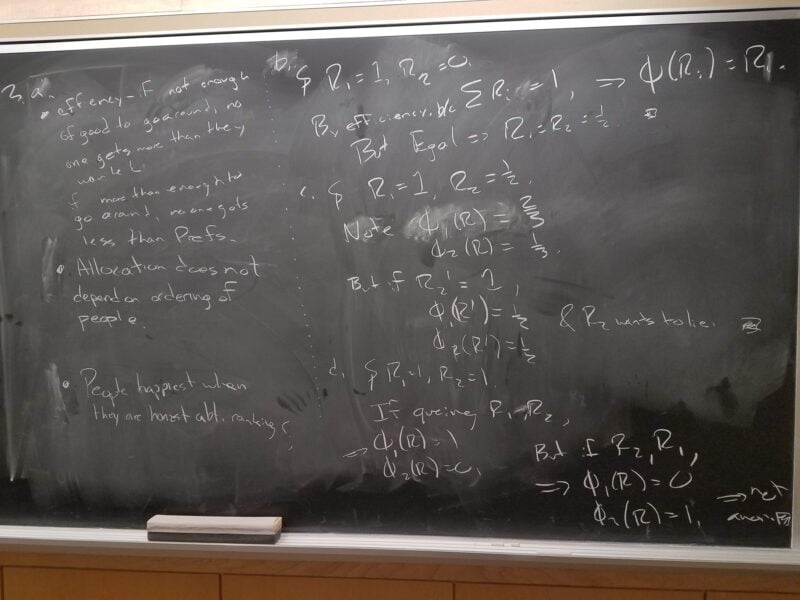 3. a.
• efficiency - If not enough
of good to go around, no
one gets more than they
want.
If more than enough to
go around, no one gets
less than Prefs.
• Allocation does not
depend on ordering of
people.
• People happiest when
they are honest abt. rankings
b. R₁=1, R₂=0.
By efficiency, b/c ∑Rᵢ=1, ⇒ ϕ(Rᵢ)=Rᵢ.
But Egal ⇒ R₁=R₂=½.
c. R₁=1, R₂=½.
Note ϕ₁(R)=⅔
ϕ₂(R)=⅓.
But if R₂'=1,
ϕ₁(R')=½
ϕ₂(R')=½ & R₂ wants to lie.
d. R₁=1, R₂=1.
If queuing R₁,R₂,
⇒ ϕ₁(R)=1
ϕ₂(R)=0,
But if R₂,R₁,
⇒ ϕ₁(R)=0
ϕ₂(R)=1, ⇒ not